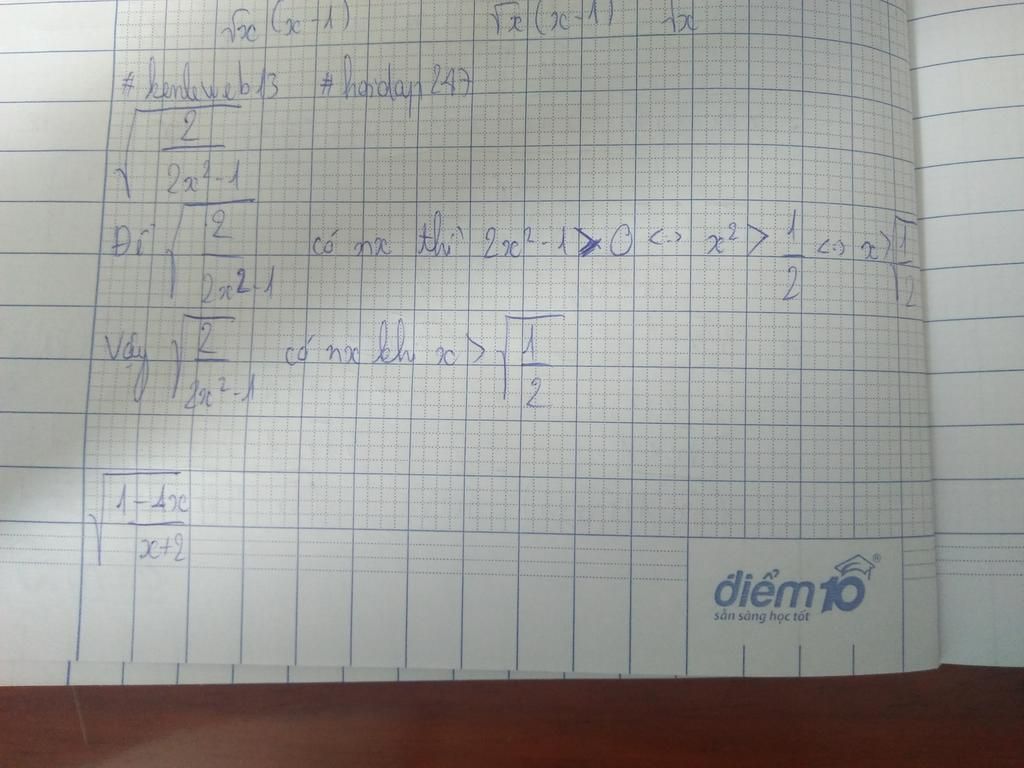 √x (x-1) √x (x-1) √x
# hoidap247
√(2/(2x²-1))
Để √(2/(2x²-1)) có nx thì 2x²-1 > 0 <-> x² > 1/2 <-> x > √(1/2)
Vậy √(2/(2x²-1)) có nx kh x > √(1/2)
√((1-4x)/(x+2))
điểm10®
sẵn sàng học tốt